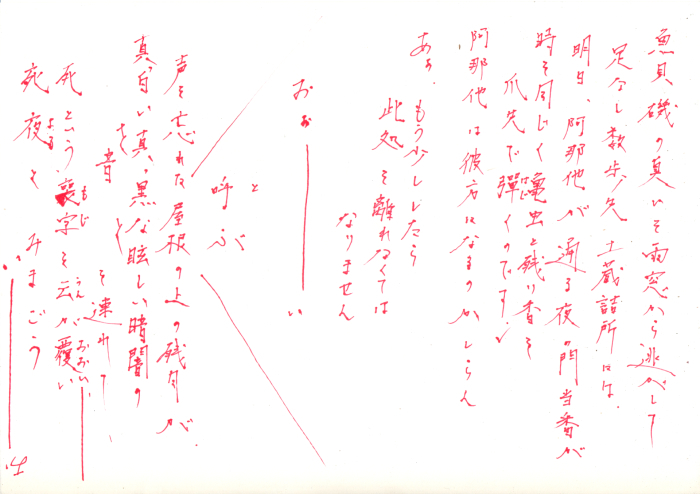 魚貝磯の臭いを雨窓から逃がして
足なし数歩先土蔵詰所には、
明日、阿那他が通る夜の門当番が
時を同じく亀虫と残り香を
爪先で弾くのです
阿那他は彼方になるのかしらん
あぁ、もう少ししたら
此処を離れなくては
なりません
おぉ――い
と
呼ぶ
声を忘れた屋根の上の残月が、
真っ白い真っ黒な眩しい暗闇の
音を連れて
死という喪字を云が覆い
死夜をみまごう
い――